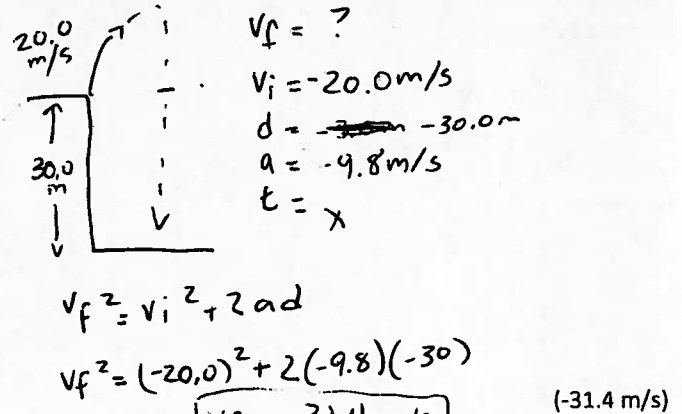 20.0
m/s
30,0
m
Vf = ?
Vi = -20.0 m/s
d = -30.0m
a = -9.8 m/s
t = x
Vf² = Vi² + 2ad
Vf² = (-20,0)² + 2(-9.8)(-30)
(-31.4 m/s)